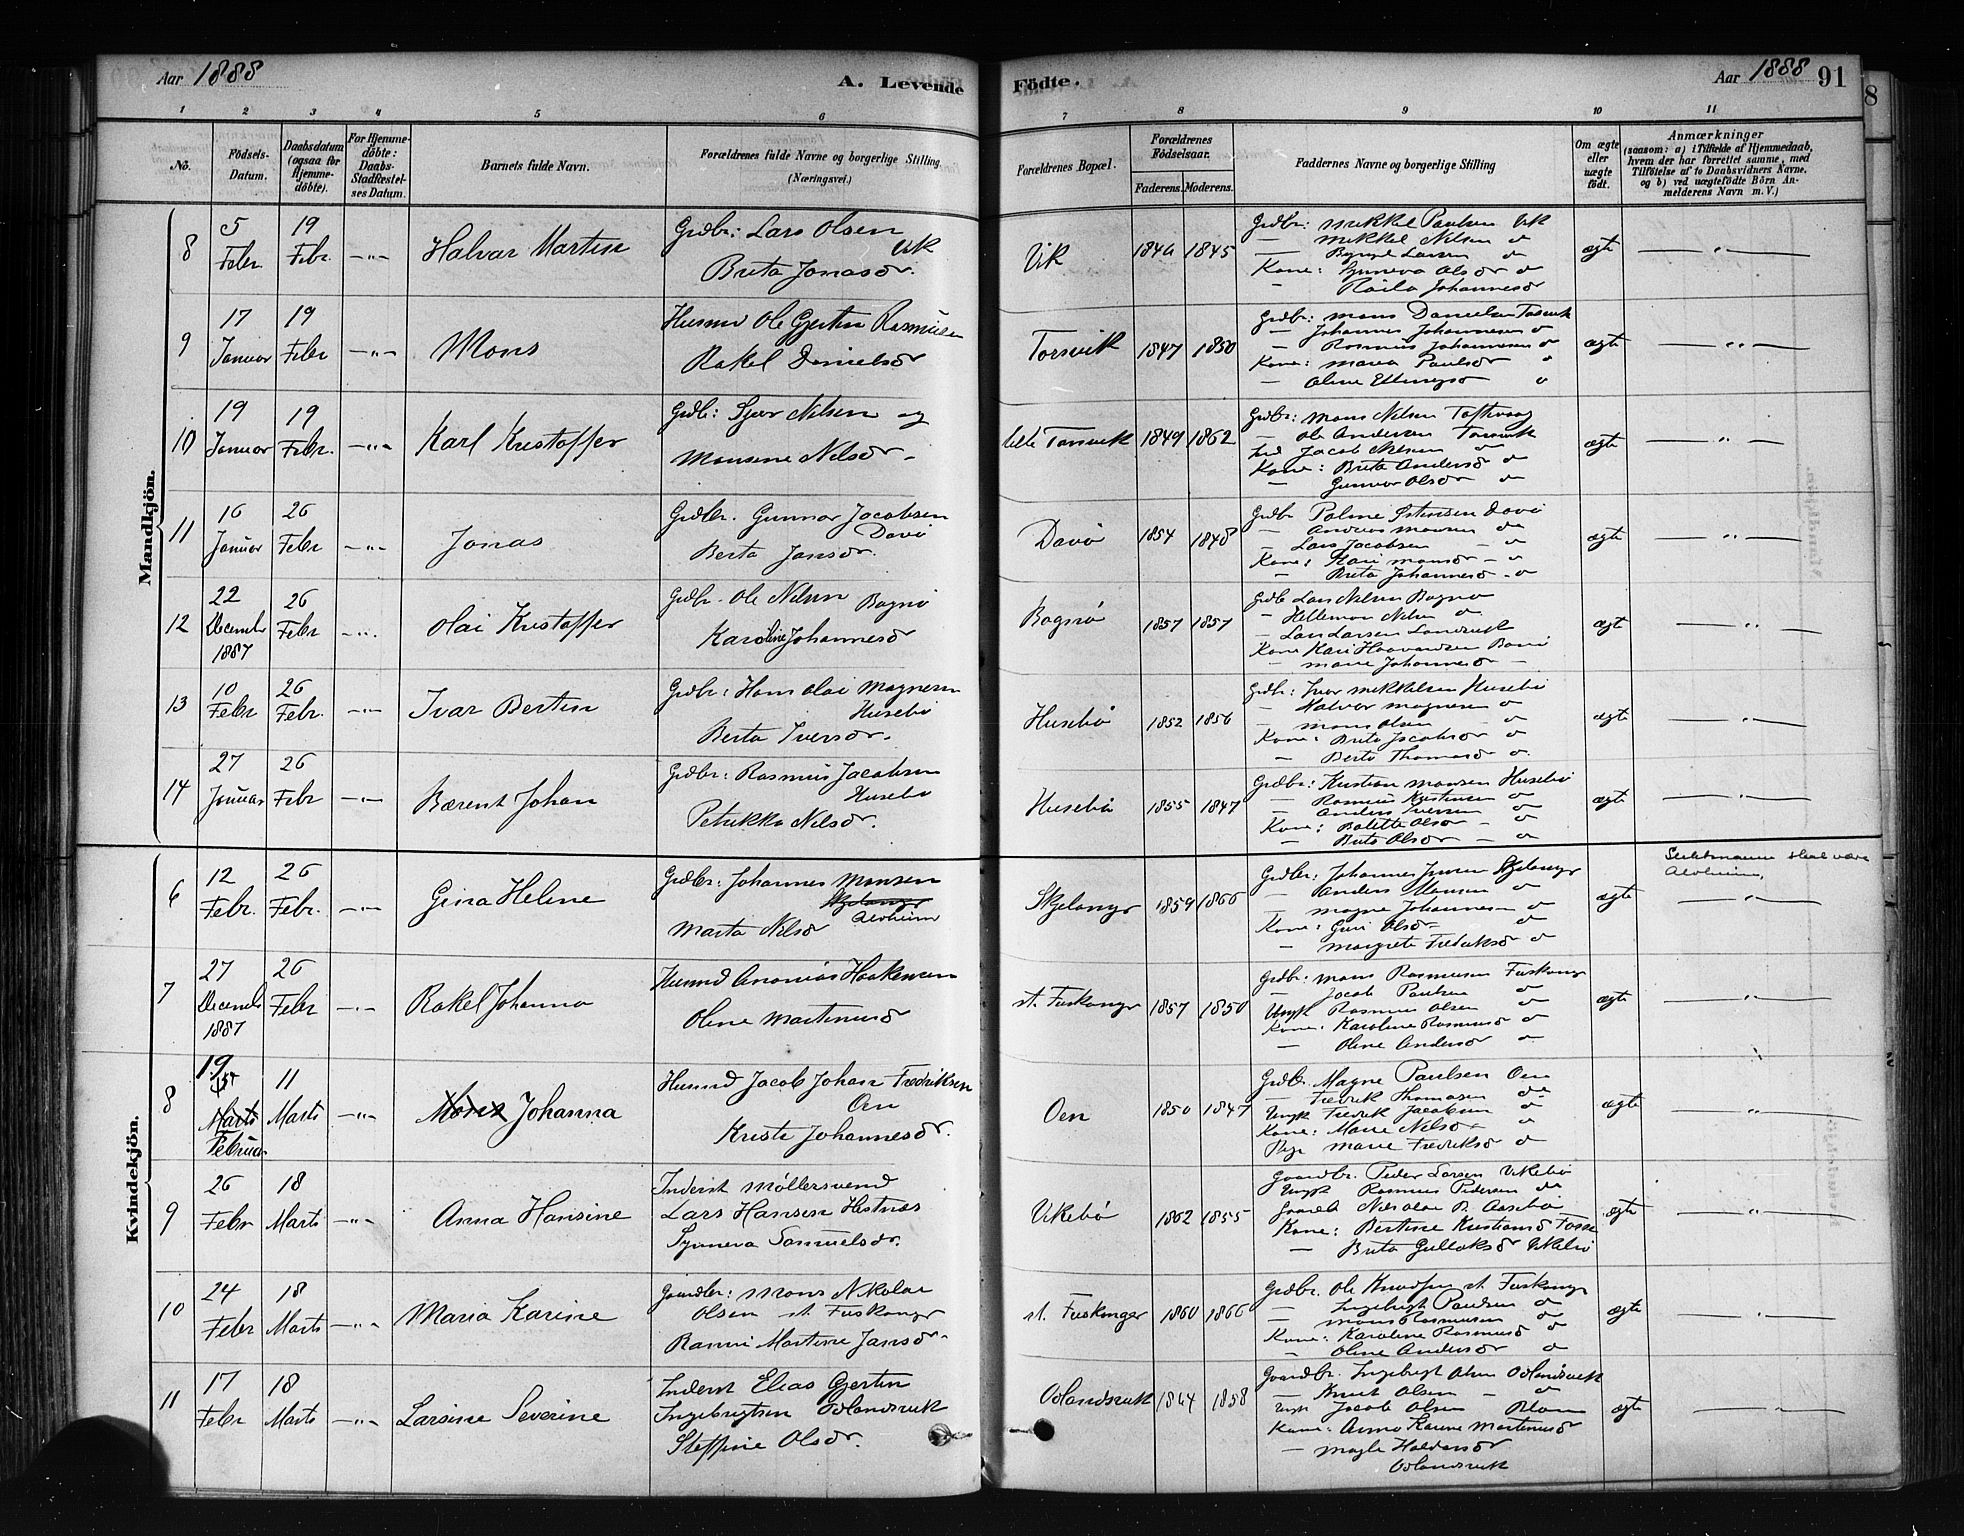 Aar 1888 A. Levende Födte. Aar 1888 91
8
1 2 3 4 5 6 7 8 9 10 11
No. Födsels-Datum. Daabsdatum (ogsaa for Hjemme-döbte). For Hjemme-döbte: Daabs Stadfæstel-ses Datum. Barnets fulde Navn. Forældrenes fulde Navne og borgerlige Stilling. (Næringsvei.) Forældrenes Bopæl. Forældrenes Födselsaar. Faderens. Moderens. Faddernes Navne og borgerlige Stilling Om ægte eller uægte födt. Anmærkninger (saasom: a) i Tilfælde af Hjemmedaab, hvem der har forrettet samme, med Tilföielse af to Daabsvidners Navne, og b) ved uægtefödte Börn An-melderens Navn m. V.)
Mandkjön.
8 5 Febr. 19 Febr. —„— Halvar Martin Grdbr: Lars Olsen Vik
Brita Jonasdr. Vik 1846 1845 Grdbr: Mikkel Paulsen Vik
— Mikkel Nilsen do
— Larsen do
Kone: Synneva Olsdr do
— Johannesdr
ægte —„—
9 17 Januar 19 Febr —„— Mons Husmd Ole Gjertin Rasmusen
Rakel Danielsdr Torsvik 1847 1850 Grdbr: Mons Danielsen Torsvik
— Johannes Johannesen do
— Rasmus Johannesen do
Kone: Maria Paulsdr do
— Oline do
ægte —„—
10 19 Januar 19 Febr. —„— Karl Kristoffer Grdb: Sjur Nilsen og
Monsine Nilsdr. Lille Torsvik 1849 1862 Grdbr: Mons Nilsen
— Ole Andersen Torsvik
Jacob Nilsen do
Kone: Brita Andersdr do
— Gunvor Olsdr do
ægte —„—
11 16 Januar 26 Febr —„— Jonas Grdbr. Gunnar Jacobsen
Davö
Berta Jansdr. Davö 1854 1848 Grdbr Davö
— Andreas Monsen do
— Lars Jacobsen do
Kone: Kari Monsdr do
— Brita Johannesdr do
ægte —„—
12 22 Decembr 1887 26 Febr —„— Olai Kristoffer Grdbr. Ole Nilsen Bognö
Karoline Johannesdr Bognö 1857 1857 Grdb Lars Nilsen Bognö
— Nilsen do
— Lars Larsen Landsvik
Kone Kari
— Marie Johannesdr —
ægte —„—
13 10 Febr 26 Febr. —„— Ivar Bertin Grdbr: Hans Olai Magnesen
Husebö
Berta Iversdr. Husebö 1852 1856 Grdbr: Ivar Mikkelsen Husebö
— Halvor Magnesen do
— Mons Olsen do
Kone: Brita Jacobsdr do
— Berta Thomasdr do
ægte —„—
14 27 Januar 26 Febr —„— Bærent Johan Grdbr: Rasmus Jacobsen
Husebö
Petrikka Nilsdr. Husebö 1855 1847 Grdbr: Kristian Monsen Husebö
— Rasmus Kristensen do
— Anders Iversen do
Kone: Bolette Olsdr do
— Brita Olsdr do
ægte —„—
Kvindekjön.
6 12 Febr. 26 Febr. —„— Gina Helene Grdbr: Johannes Monsen
Skjelanger
Alvheim
Marta Nilsdr Skjelangr 1859 1866 Grdbr: Johannes Jensen Skjelangr
— Anders Monsen do
— Magne Johannesen do
Kone: Guri Olsdr do
— Margrete Fredriksdr do
ægte skal være
Alvheim.
—„—
7 27 Decembr 1887 26 Febr —„— Rakel Johanna Husmd Ananias Haakensen
Oline Martinusdr st. Fuskangr 1857 1850 Grdbr: Mons Rasmusen Fuskangr
— Jacob Paulsen do
Ungk Rasmus Olsen do
Kone: Karoline Rasmusdr do
— Oline Andersdr do
ægte —„—
8 19 Marts Februar 11 Marts —„— Mons Johanna Husmd Jacob Johan Fredriksen
Oen
Kristi Johannesdr. Oen 1850 1847 Grdbr. Magne Paulsen Oen
— Fredrik Thomasen do
Ungk Fredrik Jacobsen do
Kone: Marie Nilsdr do
Pige Marie Fredriksdr do
ægte —„—
9 26 Febr 18 Marts —„— Anna Hansine Inderst Møllersvend
Lars Hansen Hestnæs
Synneva Samuelsdr. Vikebö 1862 1855 Gaardbr. Peder Larsen Vikebö
Ungk Rasmus Pedersen do
Gaardb Nils Olai B. Aasebö
Kone: Bertine Kristiansdr Fosse
— Brita Gulleiksdr Vikebö
ægte —„—
10 24 Febr 18 Marts —„— Maria Karine Gaardbr: Mons Nikolai
Olsen st. Fuskangr
Ranni Martine Jansdr. st. Fuskanger 1860 1866 Grdbr. Ole Knudsen st. Fuskangr
— Ingebrigt Paulsen do
— Mons Rasmusen do
Kone: Karoline Rasmusdr do
— Oline Andersdr do
ægte —„—
11 17 Febr 18 Marts —„— Larsine Severine Inderst Elias Gjertin
Ingebrigtsen Odlandsvik
Steffine Olsdr. Odlandsvik 1864 1858 Gaardbr. Ingebrigt Olsen Odlandsvik
— Knut Olsen — do
Ungk Jacob Olsen Blom
Kone: Anna Karine Martinusdr
— Magle Haldorsdr
Odlandsvik
ægte —„—